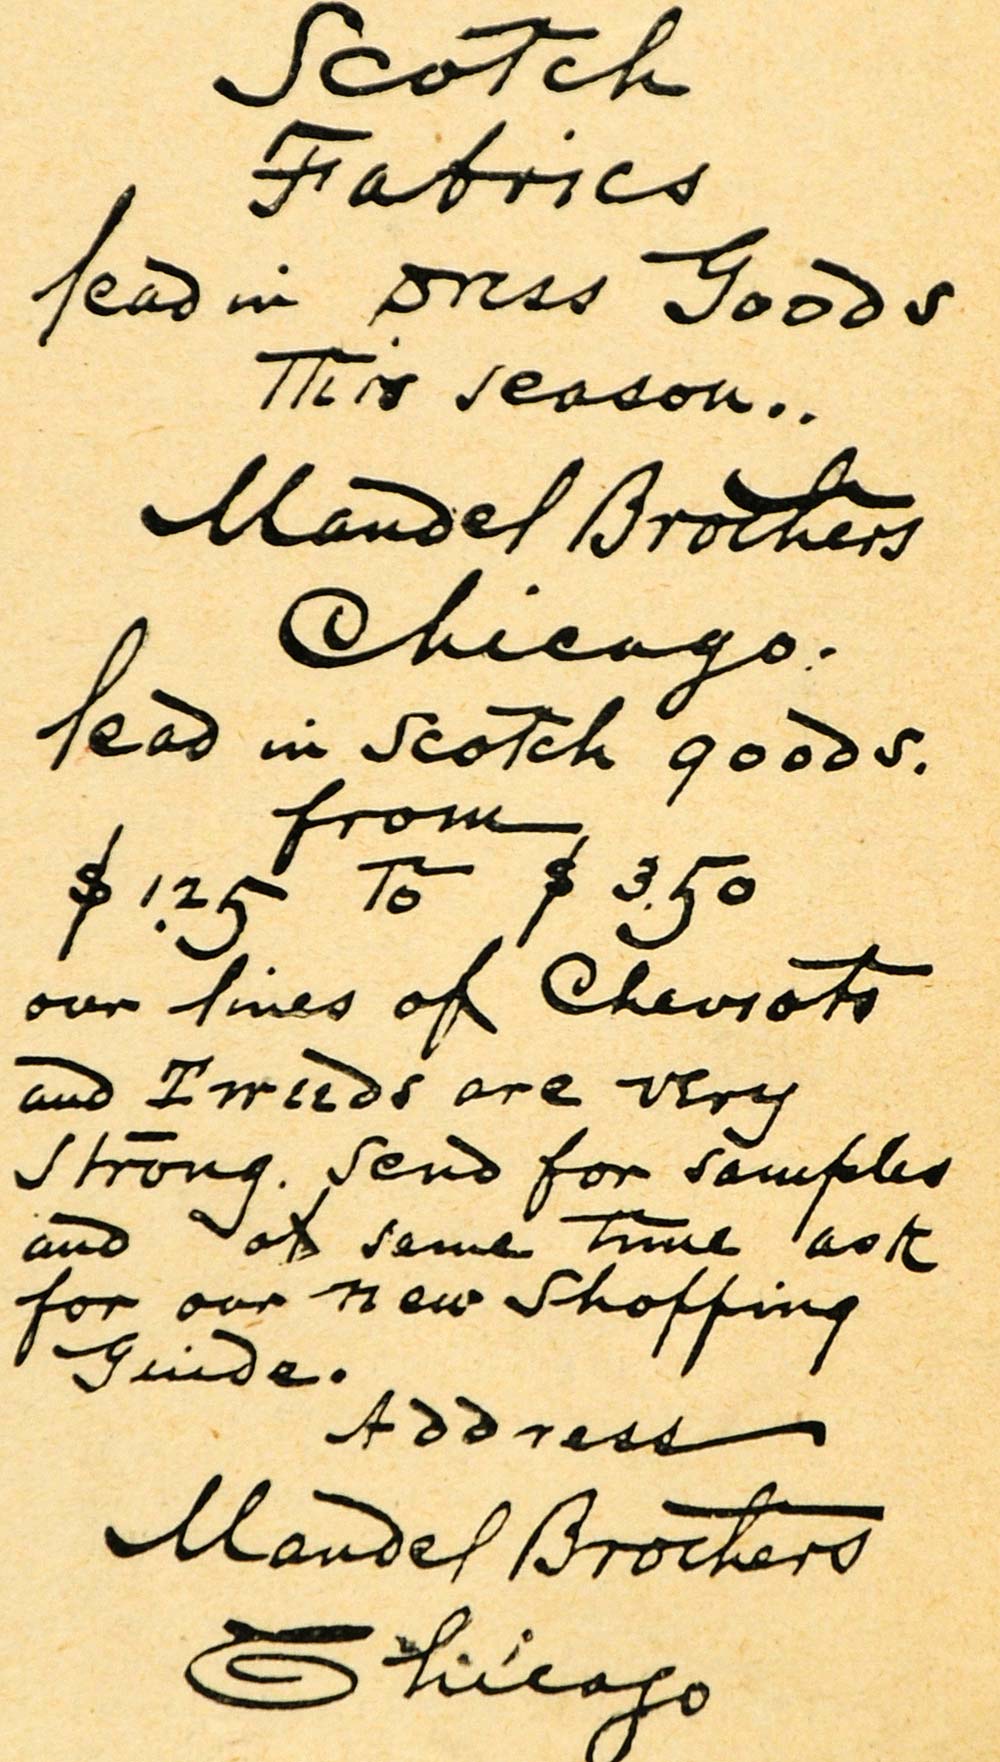 Scotch
Fabrics
lead in Dress Goods
This season..
Mandel Brothers
Chicago.
lead in Scotch goods.
from
$1.25 To $3.50
our lines of Cheviots
and Tweeds are very
strong. Send for samples
and at same time ask
for our new Shopping
Guide.
Address
Mandel Brothers
Chicago